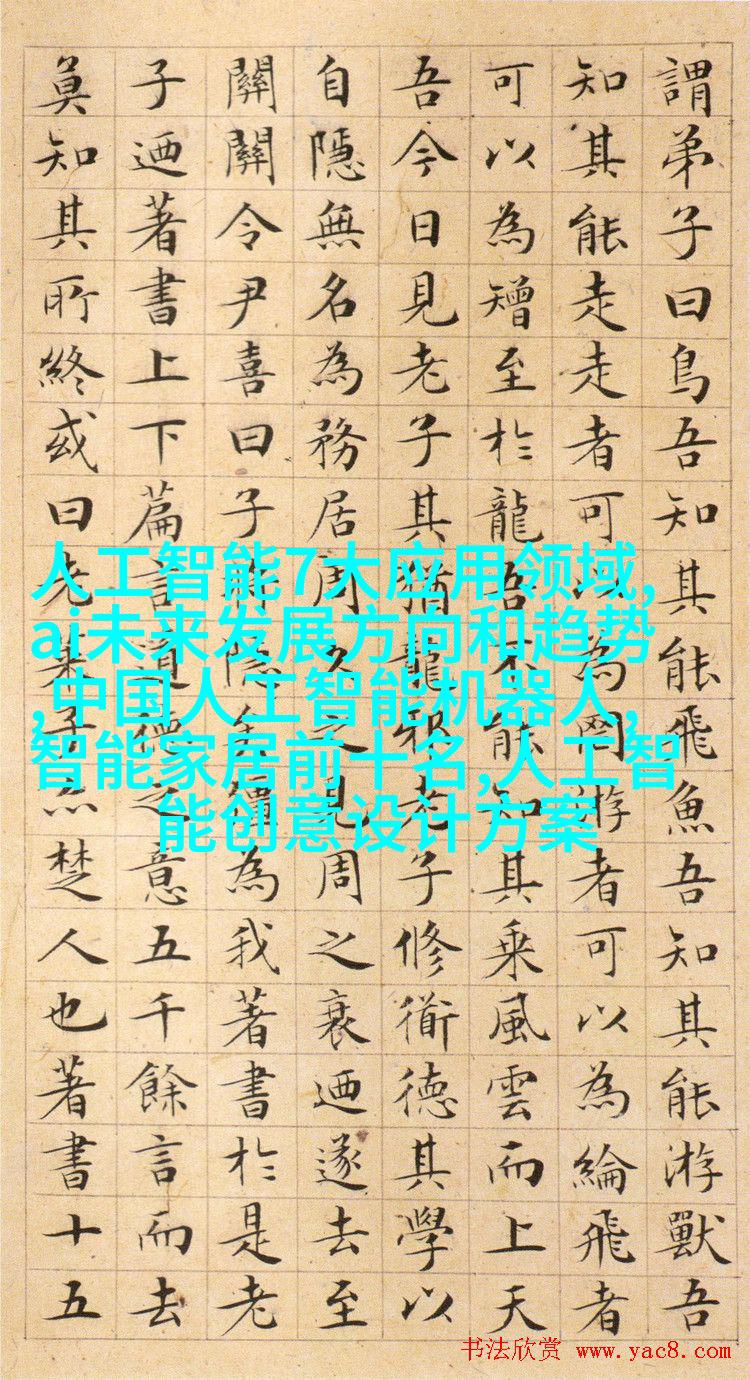 謂弟子曰鳥吾知其能飛魚吾知其能游獸吾
知其能走走者可以為罔游者可以為綸飛者
可以為矰至於龍吾不能知其乘風雲而上天
吾今日見老子其猶龍邪老子修衜德其學以
自隱無名為務居周久之見周之衰迺遂去至
關關令尹喜曰子將隱矣彊為我著書於是老
子迺著書上下篇言道德之意五千餘言而去
莫知其所終或曰老萊子亦楚人也著書十五
人工智能7大应用领域,
ai未来发展方向和趋势
,中国人工智能机器人,
智能家居前十名,人工智
能创意设计方案
书法欣赏 www.yac8.com